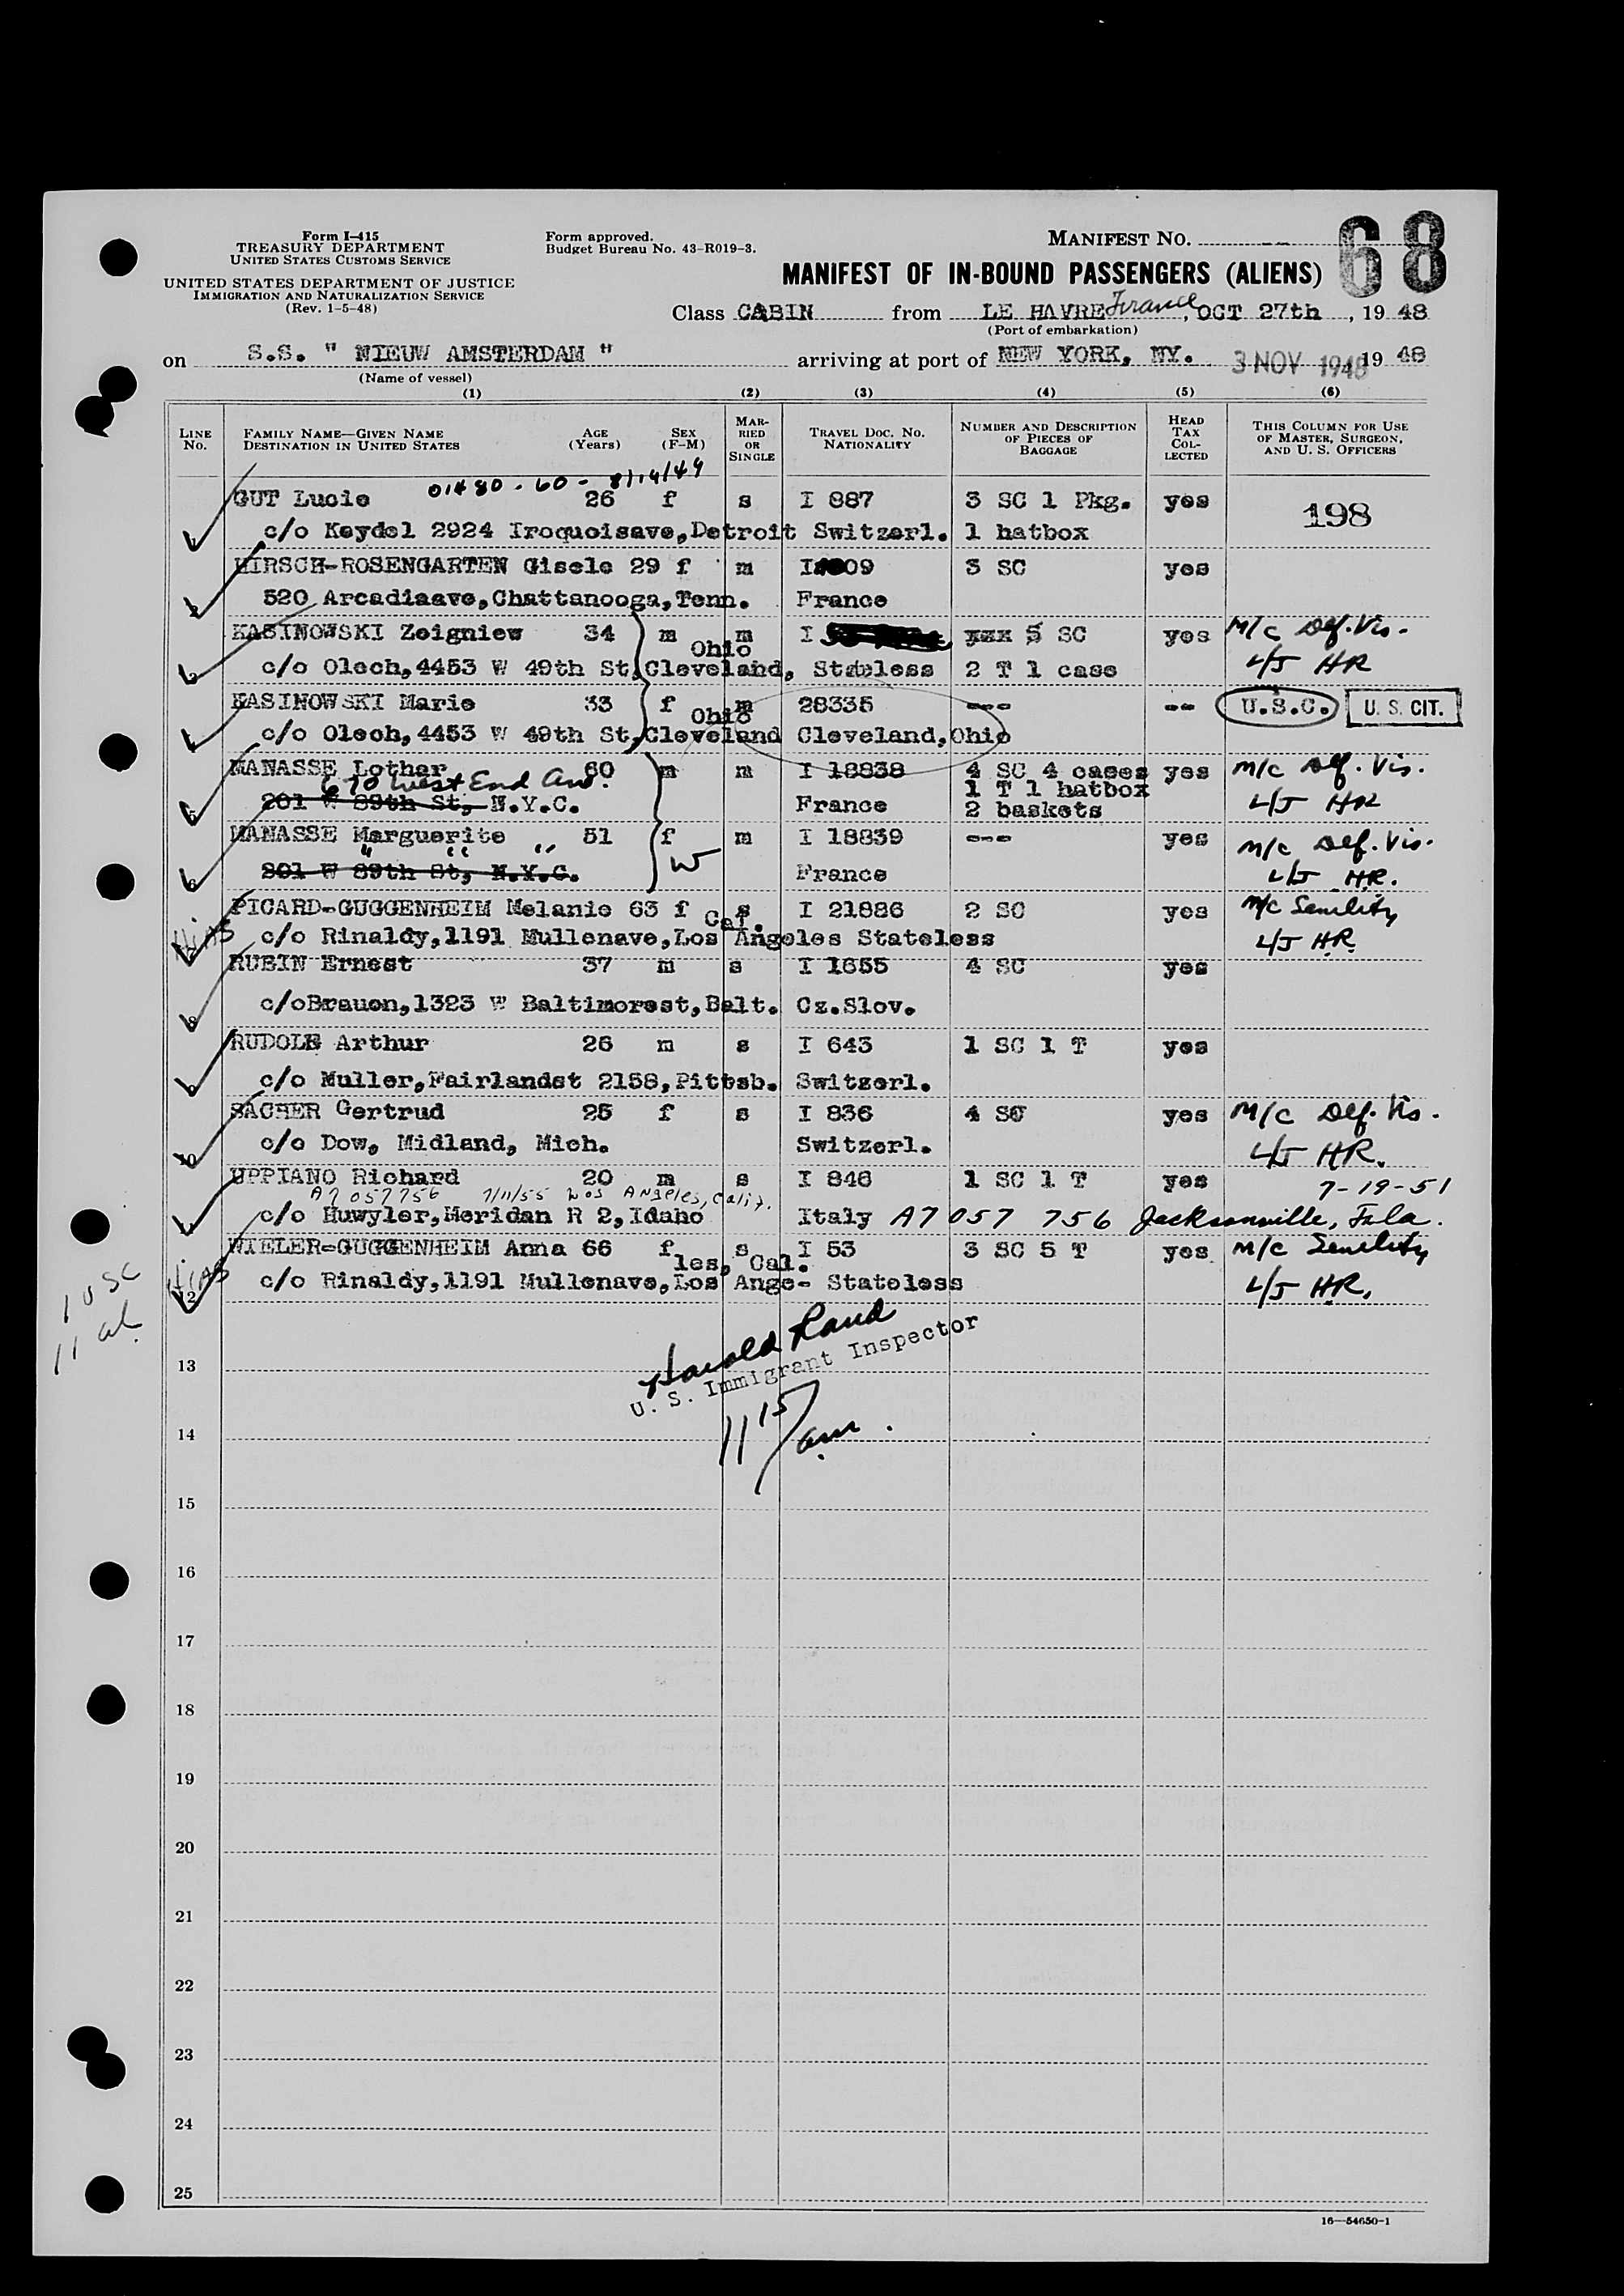 Form I-415
TREASURY DEPARTMENT
UNITED STATES CUSTOMS SERVICE
UNITED STATES DEPARTMENT OF JUSTICE
IMMIGRATION AND NATURALIZATION SERVICE
(Rev. 1-5-48)
Form approved.
Budget Bureau No. 43-R019-3.
MANIFEST NO. -- 68
MANIFEST OF IN-BOUND PASSENGERS (ALIENS)
Class CABIN from LE HAVRE France, OCT 27th, 19 48
(Port of embarkation)
on S.S. " NIEUW AMSTERDAM " arriving at port of NEW YORK, NY. 3 NOV 1948 19 48
(Name of vessel)
(1) (2) (3) (4) (5) (6)
LINE No. FAMILY NAME—GIVEN NAME DESTINATION IN UNITED STATES AGE (Years) SEX (F-M) MARRIED OR SINGLE TRAVEL DOC. NO. NATIONALITY NUMBER AND DESCRIPTION OF PIECES OF BAGGAGE HEAD TAX COLLECTED THIS COLUMN FOR USE OF MASTER, SURGEON, AND U. S. OFFICERS
01480-60- 8/14/49
GUT Lucie 26 f s I 887 3 SC 1 Pkg. yes 198
1 c/o Keydel 2924 Iroquoisave,Detroit Switzerl. 1 hatbox
HIRSCH-ROSENGARTEN Gisele 29 f m I 09 3 SC yes
2 520 Arcadiaave,Chattanooga,Tenn. France
KASINOWSKI Zeigniew 34 m m I xxx 5 SC yes M/c Def. Vis.
Ohio
3 c/o Olech,4453 W 49th St,Cleveland, Stateless 2 T 1 case L/J HR
KASINOWSKI Marie 33 f m 28335 --- -- U.S.C. U. S. CIT.
Ohio
4 c/o Olech,4453 W 49th St,Cleveland Cleveland,Ohio
MANASSE Lothar 60 m m I 18838 4 SC 4 cases yes M/c Def. Vis.
670 West End Ave. 1 T 1 hatbox
5 201 W 89th St, N.Y.C. France 2 baskets L/J HR
MANASSE Marguerite 51 f m I 18839 --- yes M/c Def. Vis.
" " "
6 201 W 89th St, N.Y.C. W France L/J H.R.
PICARD-GUGGENHEIM Melanie 63 f s I 21886 2 SC yes M/c Senility
Cal.
HIAS 7 c/o Rinaldy,1191 Mullenave,Los Angeles Stateless L/J H.R.
RUBIN Ernest 37 m s I 1655 4 SC yes
8 c/oBrauen,1323 W Baltimorest,Balt. Cz.Slov.
RUDOLF Arthur 26 m s I 643 1 SC 1 T yes
9 c/o Muller,Fairlandst 2158,Pittsb. Switzerl.
SACHER Gertrud 25 f s I 836 4 SC yes M/c Def. Vis.
10 c/o Dow, Midland, Mich. Switzerl. L/J HR.
UPPIANO Richard 20 m s I 846 1 SC 1 T yes 7-19-51
A7 057756 7/11/55 Los Angeles, Calif.
11 c/o Huwyler,Meridan R 2,Idaho Italy A7 057 756 Jacksonville, Fla.
WIELER-GUGGENHEIM Anna 66 f s I 53 3 SC 5 T yes M/c Senility
les, Cal.
HIAS 12 c/o Rinaldy,1191 Mullenave,Los Ange- Stateless L/J H.R.
1 USC
11 al.
Harold Rand
U. S. Immigrant Inspector
11 15/am.
13
14
15
16
17
18
19
20
21
22
23
24
25
16—54650-1